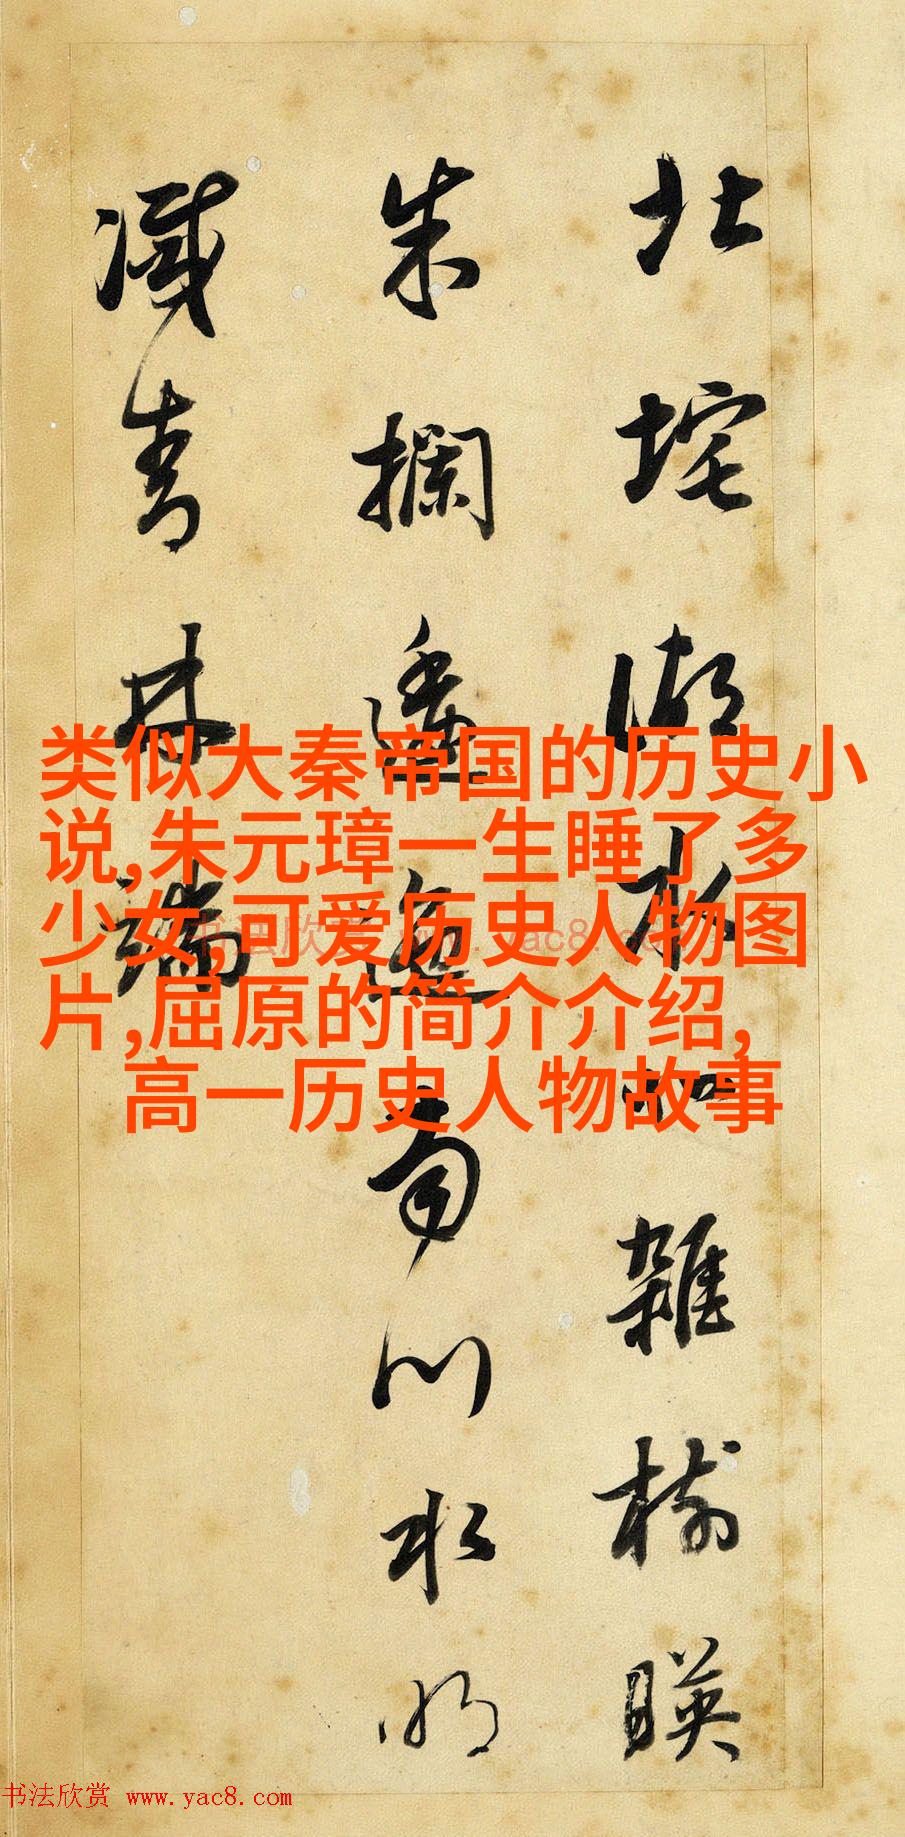 北垞湖水北雜樹暎
朱欄逶迤南川水明
滅青林端
类似大秦帝国的历史小
说,朱元璋一生睡了多
少女,可爱历史人物图
片,屈原的简介介绍,
高一历史人物故事
书法欣赏 www.yac8.com
书法欣赏 www.yac8.com